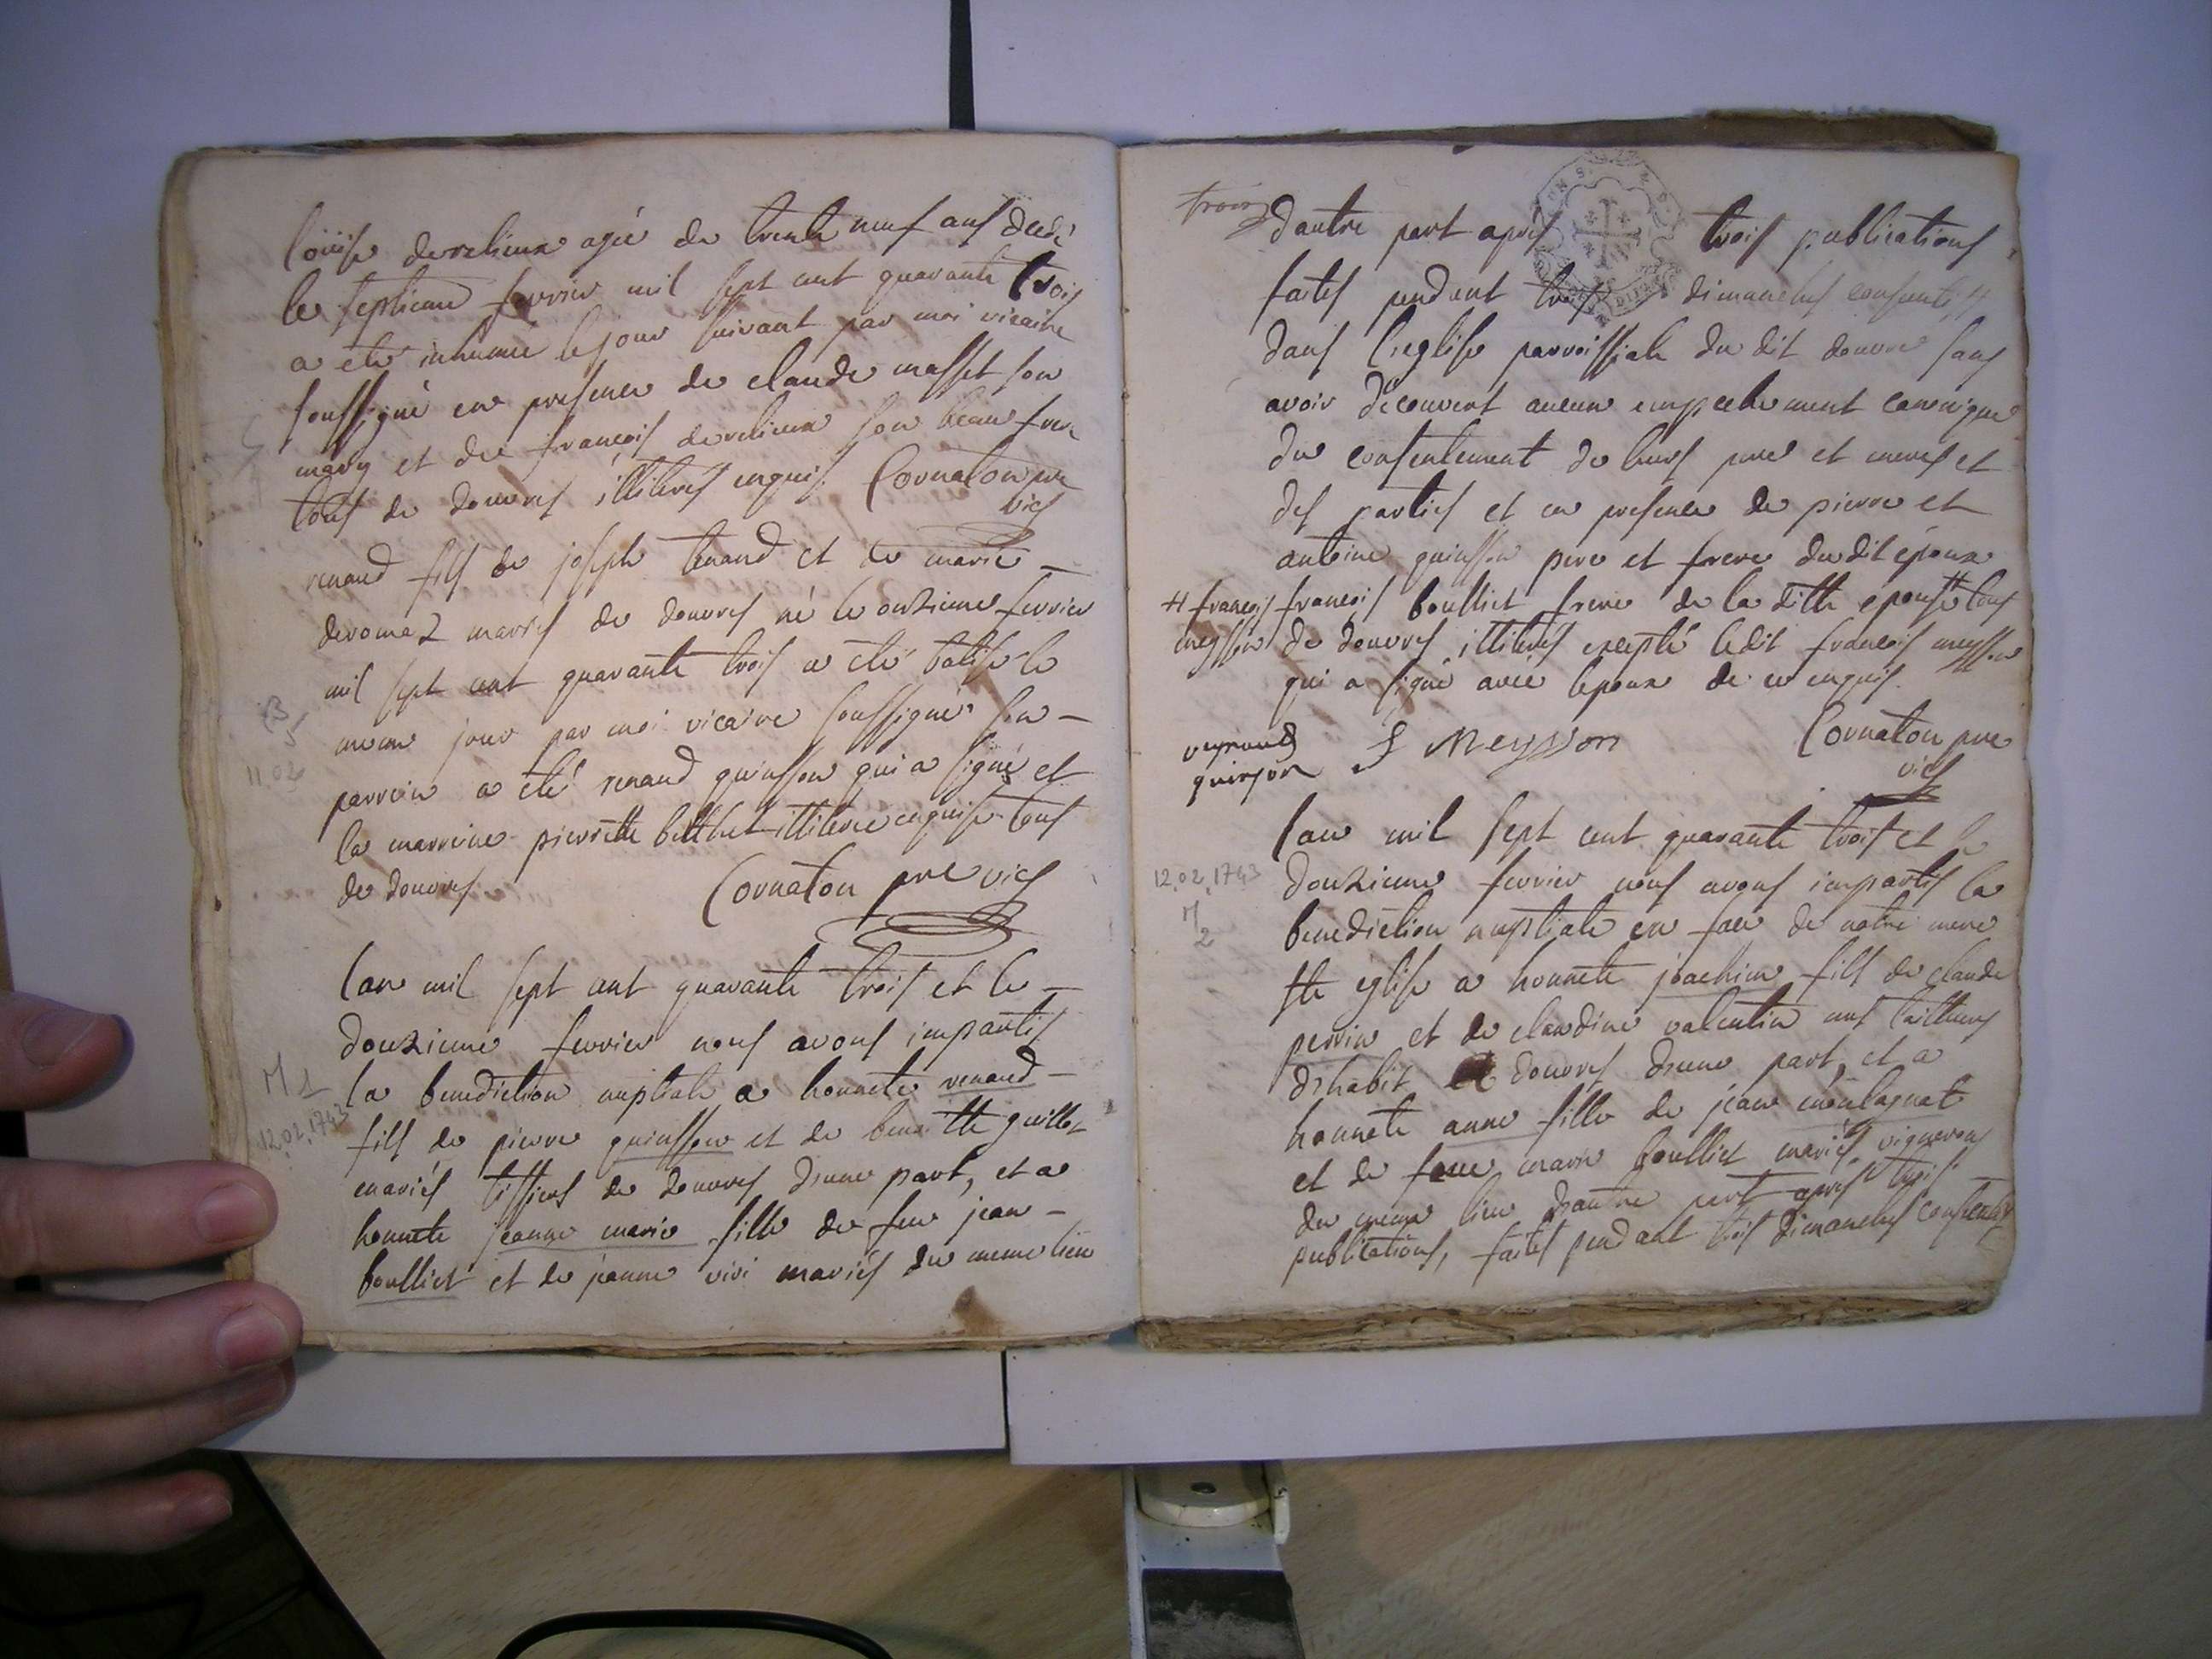 loüise derelieux agée de trente neuf ans decedé
le septieme fevrier mil sept cent quarante trois
a été inhumée le jour suivant par moi vicaire
soussigné en presence de claude masset son
mary et de françois derelieux son beau frere
tous de douvres illiterés enquis. Cornaton pre
vics
renaud fils de joseph tenand et de marie
deromaz mariés de douvres né le onzieme fevrier
mil sept cent quarante trois a été batisé le
meme jour par moi vicaire soussigné son
parrein a été renaud quinsson qui a signé et
la marreine pierrette illiterée enquise tous
de douvres
Cornaton pre vics
B
5
11.02
lan mil sept cent quarante trois et le
douzieme fevrier nous avons impartis
la benediction nuptiale a honnete renaud
fils de pierre quinsson et de benoitte guillot
mariés tissiers de douvres d'une part, et a
honnete jeanne marie fille de feu jean
boulliet et de jeanne vivi mariés du meme lieu
M 1
12.02.1743
trois
d'autre part apres trois publications
faites pendant trois dimanches consecutifs
dans l'eglise parroissiale du dit douvre sans
avoir découvert aucun empechement canonique
du consentement de leurs peres et meres et
des parties et en presence de pierre et
antoine quinsson pere et frere du dit époux
françois boulliet frere de la ditte epouse # tous
# françois
meysson
de douvres illiterés excepté ledit françois meysson
qui a signé avec lepoux de ce enquis.
renaud
quinson
f Meysson
Cornaton pre
vics
lan mil sept cent quarante trois et le
douzieme fevrier nous avons impartis la
benediction nuptiale en face de notre mere
ste eglise a honnete joachim fils de claude
perrin et de claudine valentin mes tailleurs
d'habit de douvres d'une part, et a
honnete anne fille de jean montagnat
et de feue marie boulliet mariés vignerons
du meme lieu d'autre part apres trois
publications, faites pendant trois dimanches consecutifs
12.02.1743
M
2